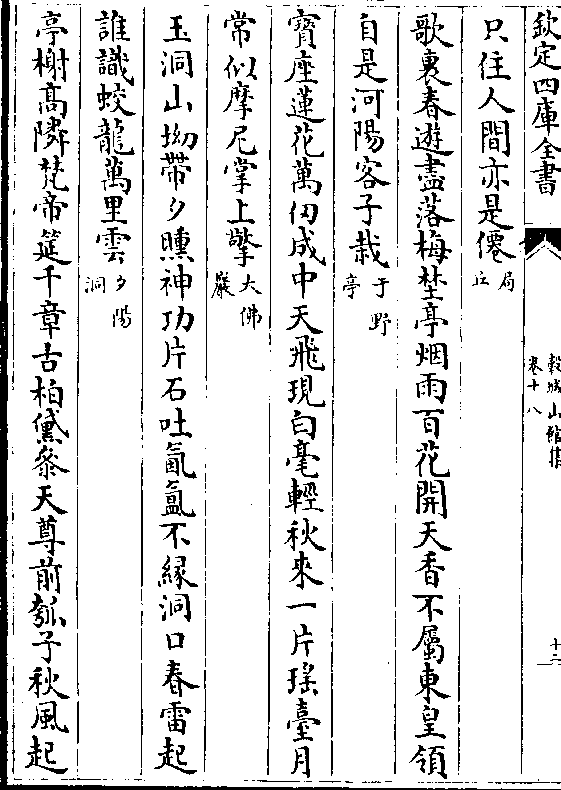 欽定四庫全書
穀城山館集
卷十八
十二
只住人間亦是僊
局丘
歌裏春遊盡落梅埜亭烟雨百花開天香不屬東皇領
自是河陽客子栽
于野亭
寶座蓮花萬仞成中天飛現白毫輕秋來一片瑤臺月
常似摩尼掌上擎
大佛巖
玉洞山坳帶夕曛神功片石吐氤氳不緣洞口春雷起
誰識蛟龍萬里雲
夕陽洞
亭榭髙隣梵帝筵千章古柏黛叅天尊前瓠子秋風起